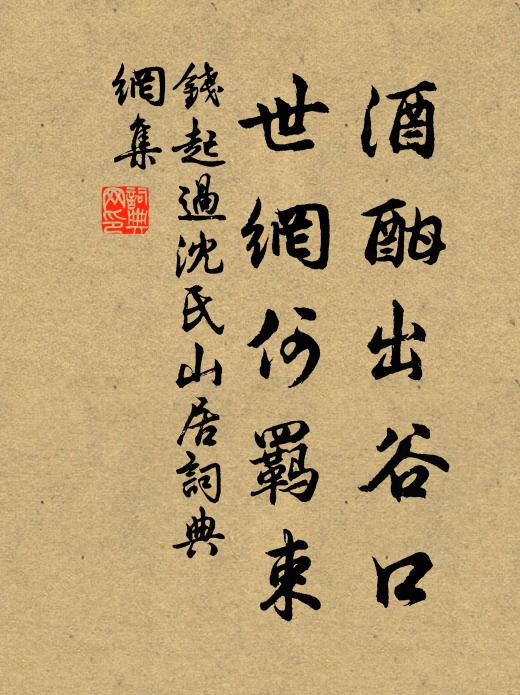 酒酣出谷口
世網何羈束
錢起過沈氏山居詞典
網集
詞典
网印